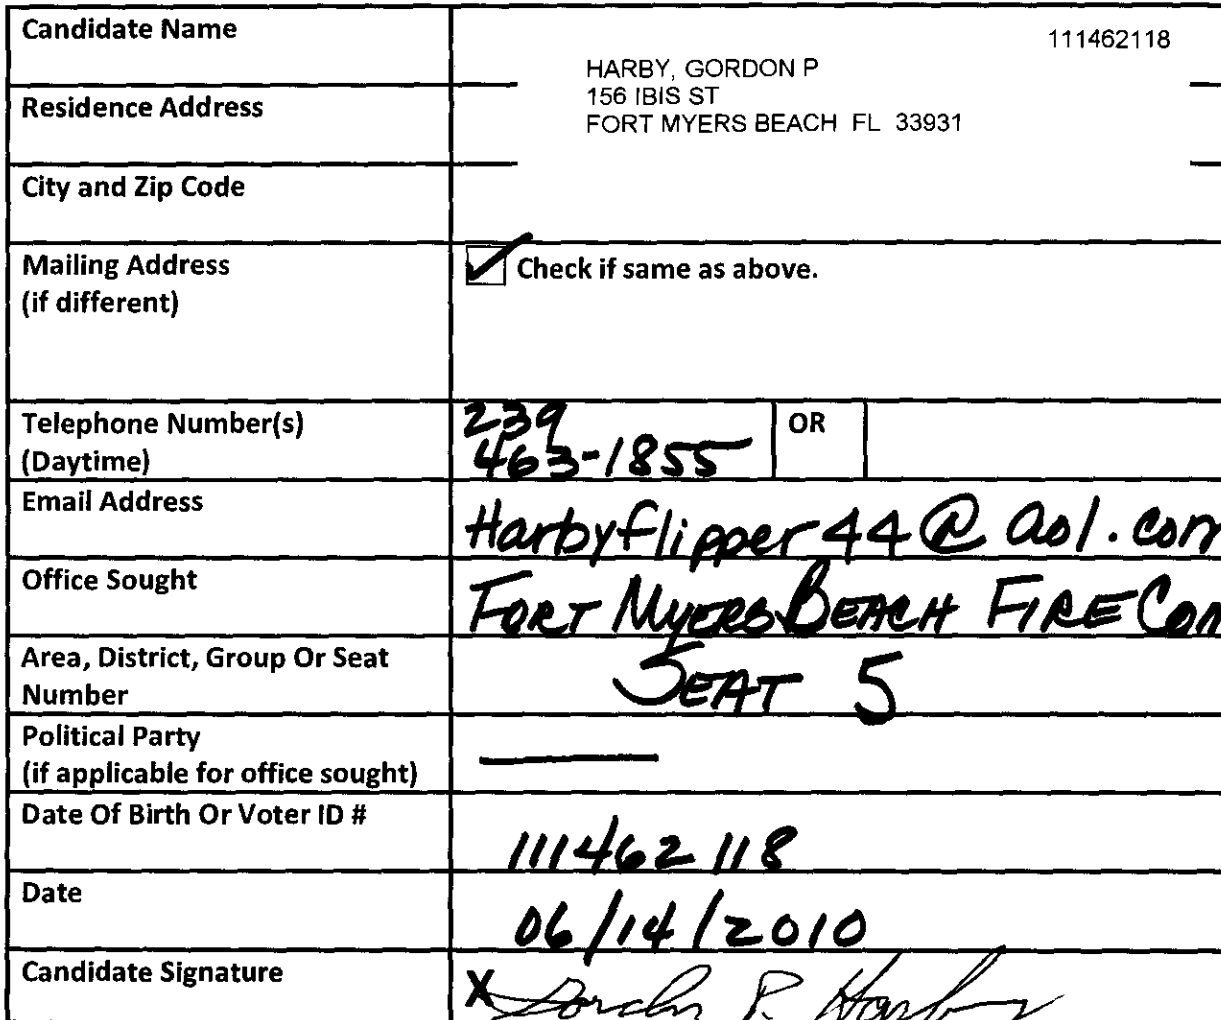 Candidate Name
111462118
HARBY, GORDON P
Residence Address
156 IBIS ST
FORT MYERS BEACH FL 33931
City and Zip Code
Mailing Address
(if different)
Check if same as above.
Telephone Number(s)
(Daytime)
239
463-1855
OR
Email Address
Harbyflipper44@aol.com
Office Sought
FORT MYERS BEACH FIRE COM
Area, District, Group Or Seat
Number
SEAT 5
Political Party
(if applicable for office sought)
Date Of Birth Or Voter ID #
111462118
Date
06/14/2010
Candidate Signature
X Gordon P. Harby